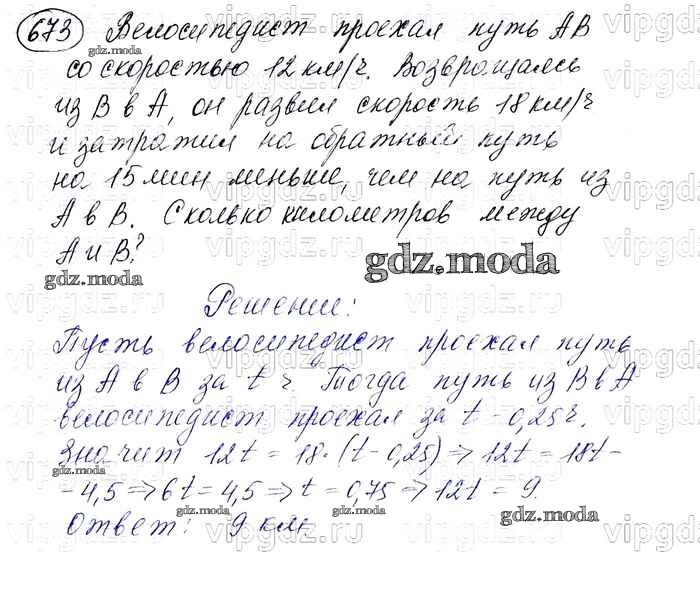 673 Велосипедист проехал путь AB
со скоростью 12 км/ч. Возвращаясь
из B в A, он развил скорость 18 км/ч
и затратил на обратный путь
на 15 мин меньше, чем на путь из
A в B. Сколько километров между
A и B?
gdz.moda
gdz.moda
gdz.moda
Решение:
Пусть велосипедист проехал путь
из A в B за t ч. Тогда путь из B в A
велосипедист проехал за t - 0,25 ч.
Значит 12t = 18·(t - 0,25) => 12t = 18t -
- 4,5 => 6t = 4,5 => t = 0,75 => 12t = 9.
Ответ: 9 км.
gdz.moda
gdz.moda
gdz.moda
gdz.moda
vipgdz.ru